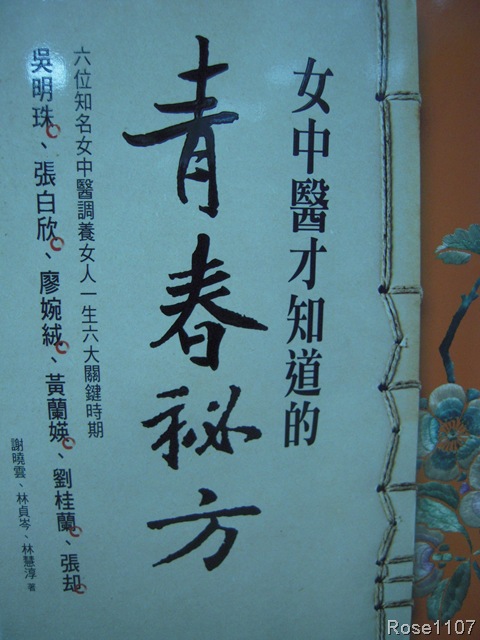 女中醫才知道的
青春祕方
六位知名女中醫調養女人一生六大關鍵時期
吳明珠、張白欣、廖婉絨、黃蘭媖、劉桂蘭、張却
謝曉雲、林貞岑、林慧淳 著
Rose1107